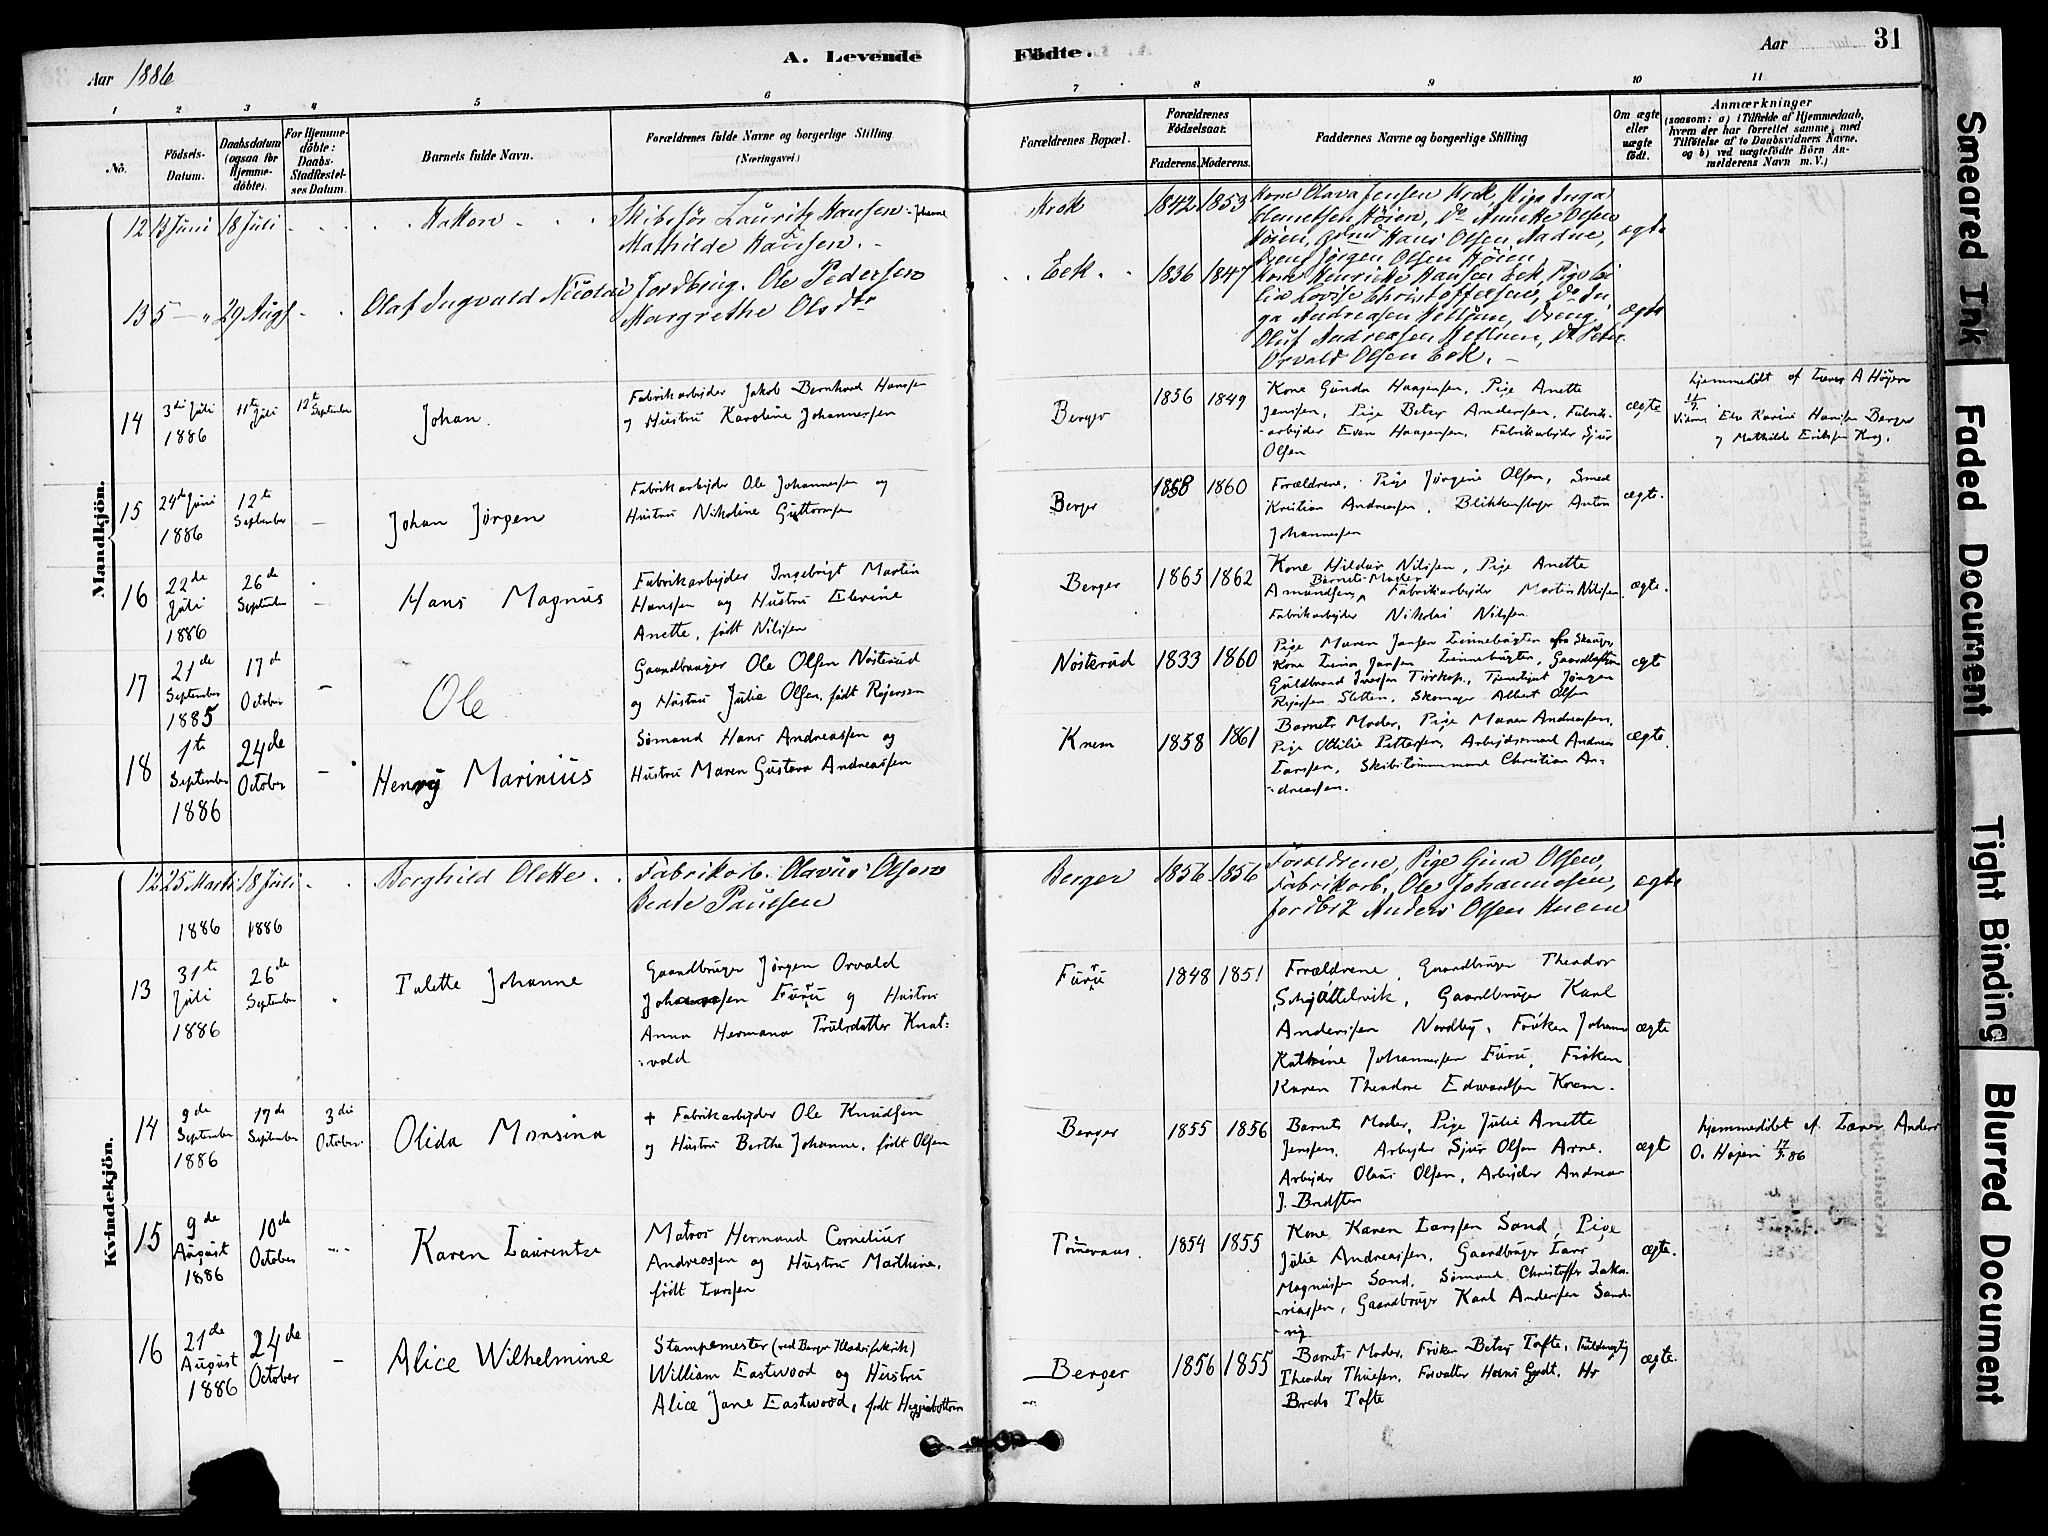 Aar 1886
A. Levende Födte.
Aar 31
1 2 3 4 5 6 7 8 9 10 11
No.
Födsels-Datum.
Daabsdatum (ogsaa for Hjemmedöbte).
For Hjemmedöbte: Daabs-Stadfæstelses Datum.
Barnets fulde Navn.
Forældrenes fulde Navne og borgerlige Stilling
(Næringsvei)
Forældrenes Bopæl.
Forældrenes Födselsaar.
Faderens. Moderens.
Faddernes Navne og borgerlige Stilling
Om ægte eller uægte födt.
Anmærkninger
(saasom: a) i Tilfælde af Hjemmedaab, hvem der har forrettet samme, med Tilföielse af to Daabsvidners Navne. og b) ved uægtefödte Börn Anmelderens Navn m. V.)
Mandkjön.
12 13 Juni 18 Juli Hakon
Skibsför Lauritz Hansen Johanne
Mathilde Hansen.
Krok 1842 1853
Kone Olava Jensen Krok, Pige Inga
Clemetsen Höien, Do Annette Olsen
Höien, Hans Olsen,
Dreng Jörgen Olsen Höien
ægte
13 5 — " 29 Augs Olaf Ingvald Nicolai
Jordbrug. Ole Pedersen
Margrethe Olsdtr
Eek. 1836 1847
Kone Henrikke Hansen Eek, Pige
Lovise Christoffersen, Do In
ga Andreasen Hellum, Dreng
Oluf Andreasen Hellum, Do Peter
Osvald Olsen Eek. —
ægte
14 3die Juli 1886 11te Juli 12te September Johan.
Fabrikarbejder Jakob Bernhard Hanssen
og Hustru Karoline Johannessen
Berger 1856 1849
Kone Gunda Haagensen, Pige Anette
Jenssen, Pige Betsy Anderssen, Fabrik-
-arbejder Even Haagensen, Fabrikarbejder Sjur
Olsen
ægte
hjemmedöbt af Lærer A Höjen
Vidner Karine Hansen Berger
og Mathilde Eriksen Krog.
15 24de Juni 1886 12te September — Johan Jörgen
Fabrikarbejder Ole Johannessen og
Hustru Nikoline Guttormsen
Berger 1858 1860
Forældrene, Pige Jörgine Olsen, Smed
Kristian Andreassen, Blikkenslager Anton
Johannessen
ægte.
16 22de Juli 1886 26de September — Hans Magnus
Fabrikarbejder Ingebrigt Martin
Hanssen og Hustru Elevine
Anette, födt Nilssen
Berger 1865 1862
Kone Hildur Nilssen, Pige Anette
Barnets Moder
Amundsen, Fabrikarbejder Martin Nilssen,
Fabrikarbejder Nikolai Nilssen.
ægte.
17 21de September 1885 17de October — Ole
Gaardbruger Ole Olsen Nösterud
og Hustru Julie Olsen, födt Rejersen
Nösterud 1833 1860
Pige Maren Jansen Linnebugten
Kone Jansen Linnebugten,
Guldbrand Tjenestegut Jörgen
Rejersen Sletten, Skomager Albert Olsen
ægte
18 1te September 1886 24de October — Henry Marinius
Sömand Hans Andreassen og
Hustru Maren Gustava Andreassen
Knem 1858 1861
Barnets Moder, Pige Maren Andreassen,
Pige Ottilie Pettersen, Arbejdsmand Andreas
Larssen, Skibstömmermand Christian An-
-dreassen.
ægte.
Kvindekjön.
12 25 Marts 1886 18 Juli 1886 Borghild Olette
Fabrikarb. Olavus Olsen
Beate Paulsen
Berger 1856 1856
Forældrene, Pige Gina Olsen,
Fabrikarb. Ole Johannesen,
Jordbr. Anders Olsen Knem
ægte
13 31te Juli 1886 26de September Talette Johanne
Gaardbruger Jörgen Osvald
Johannessen Furu og Hustru
Anna Hermana Trulsdatter Knat-
-vold
Furu 1848 1851
Forældrene, Gaardbruger Theodor
Schjöttelvik, Gaardbruger Karl
Anderssen Nordby, Fröken Johanne
Kathrine Johannessen Furu, Fröken
Karen Theodore Edwardsen Knem.
ægte
14 9de September 1886 17de September 3die October Olida Monsina
+ Fabrikarbejder Ole Knudsen
og Hustru Berthe Johanne, födt Olsen
Berger 1855 1856
Barnets Moder, Pige Julie Anette
Jenssen, Arbejder Sjur Olsen Arne.
Arbejder Olaus Olsen, Arbejder Andreas
J. Bredsten
ægte
hjemmedöbt af Lærer Anders
O. Höjen 17/9 86
15 9de August 1886 10de October Karen Laurentze
Matros Hermand Cornelius
Andreassen og Hustru Mathine,
födt Larssen
1854 1855
Kone Karen Larssen Sand, Pige
Julie Andreassen, Gaardbruger Lars
Magnussen Sand, Sömand Christoffer Zaka-
-riassen, Gaardbruger Karl Anderssen Sand-
-vig
ægte.
16 21de August 1886 24de October — Alice Wilhelmine
Stampemester (ved Berger Klædesfabrik)
William Eastwood og Hustru
Alice Jane Eastwood, födt Higginbottom
Berger 1856 1855
Barnets Moder, Fröken Betsy Tofte,
Theodor Forvalter Hans Hr
Brede Tofte
ægte.
Smeared Ink
Faded Document
Tight Binding
Blurred Document